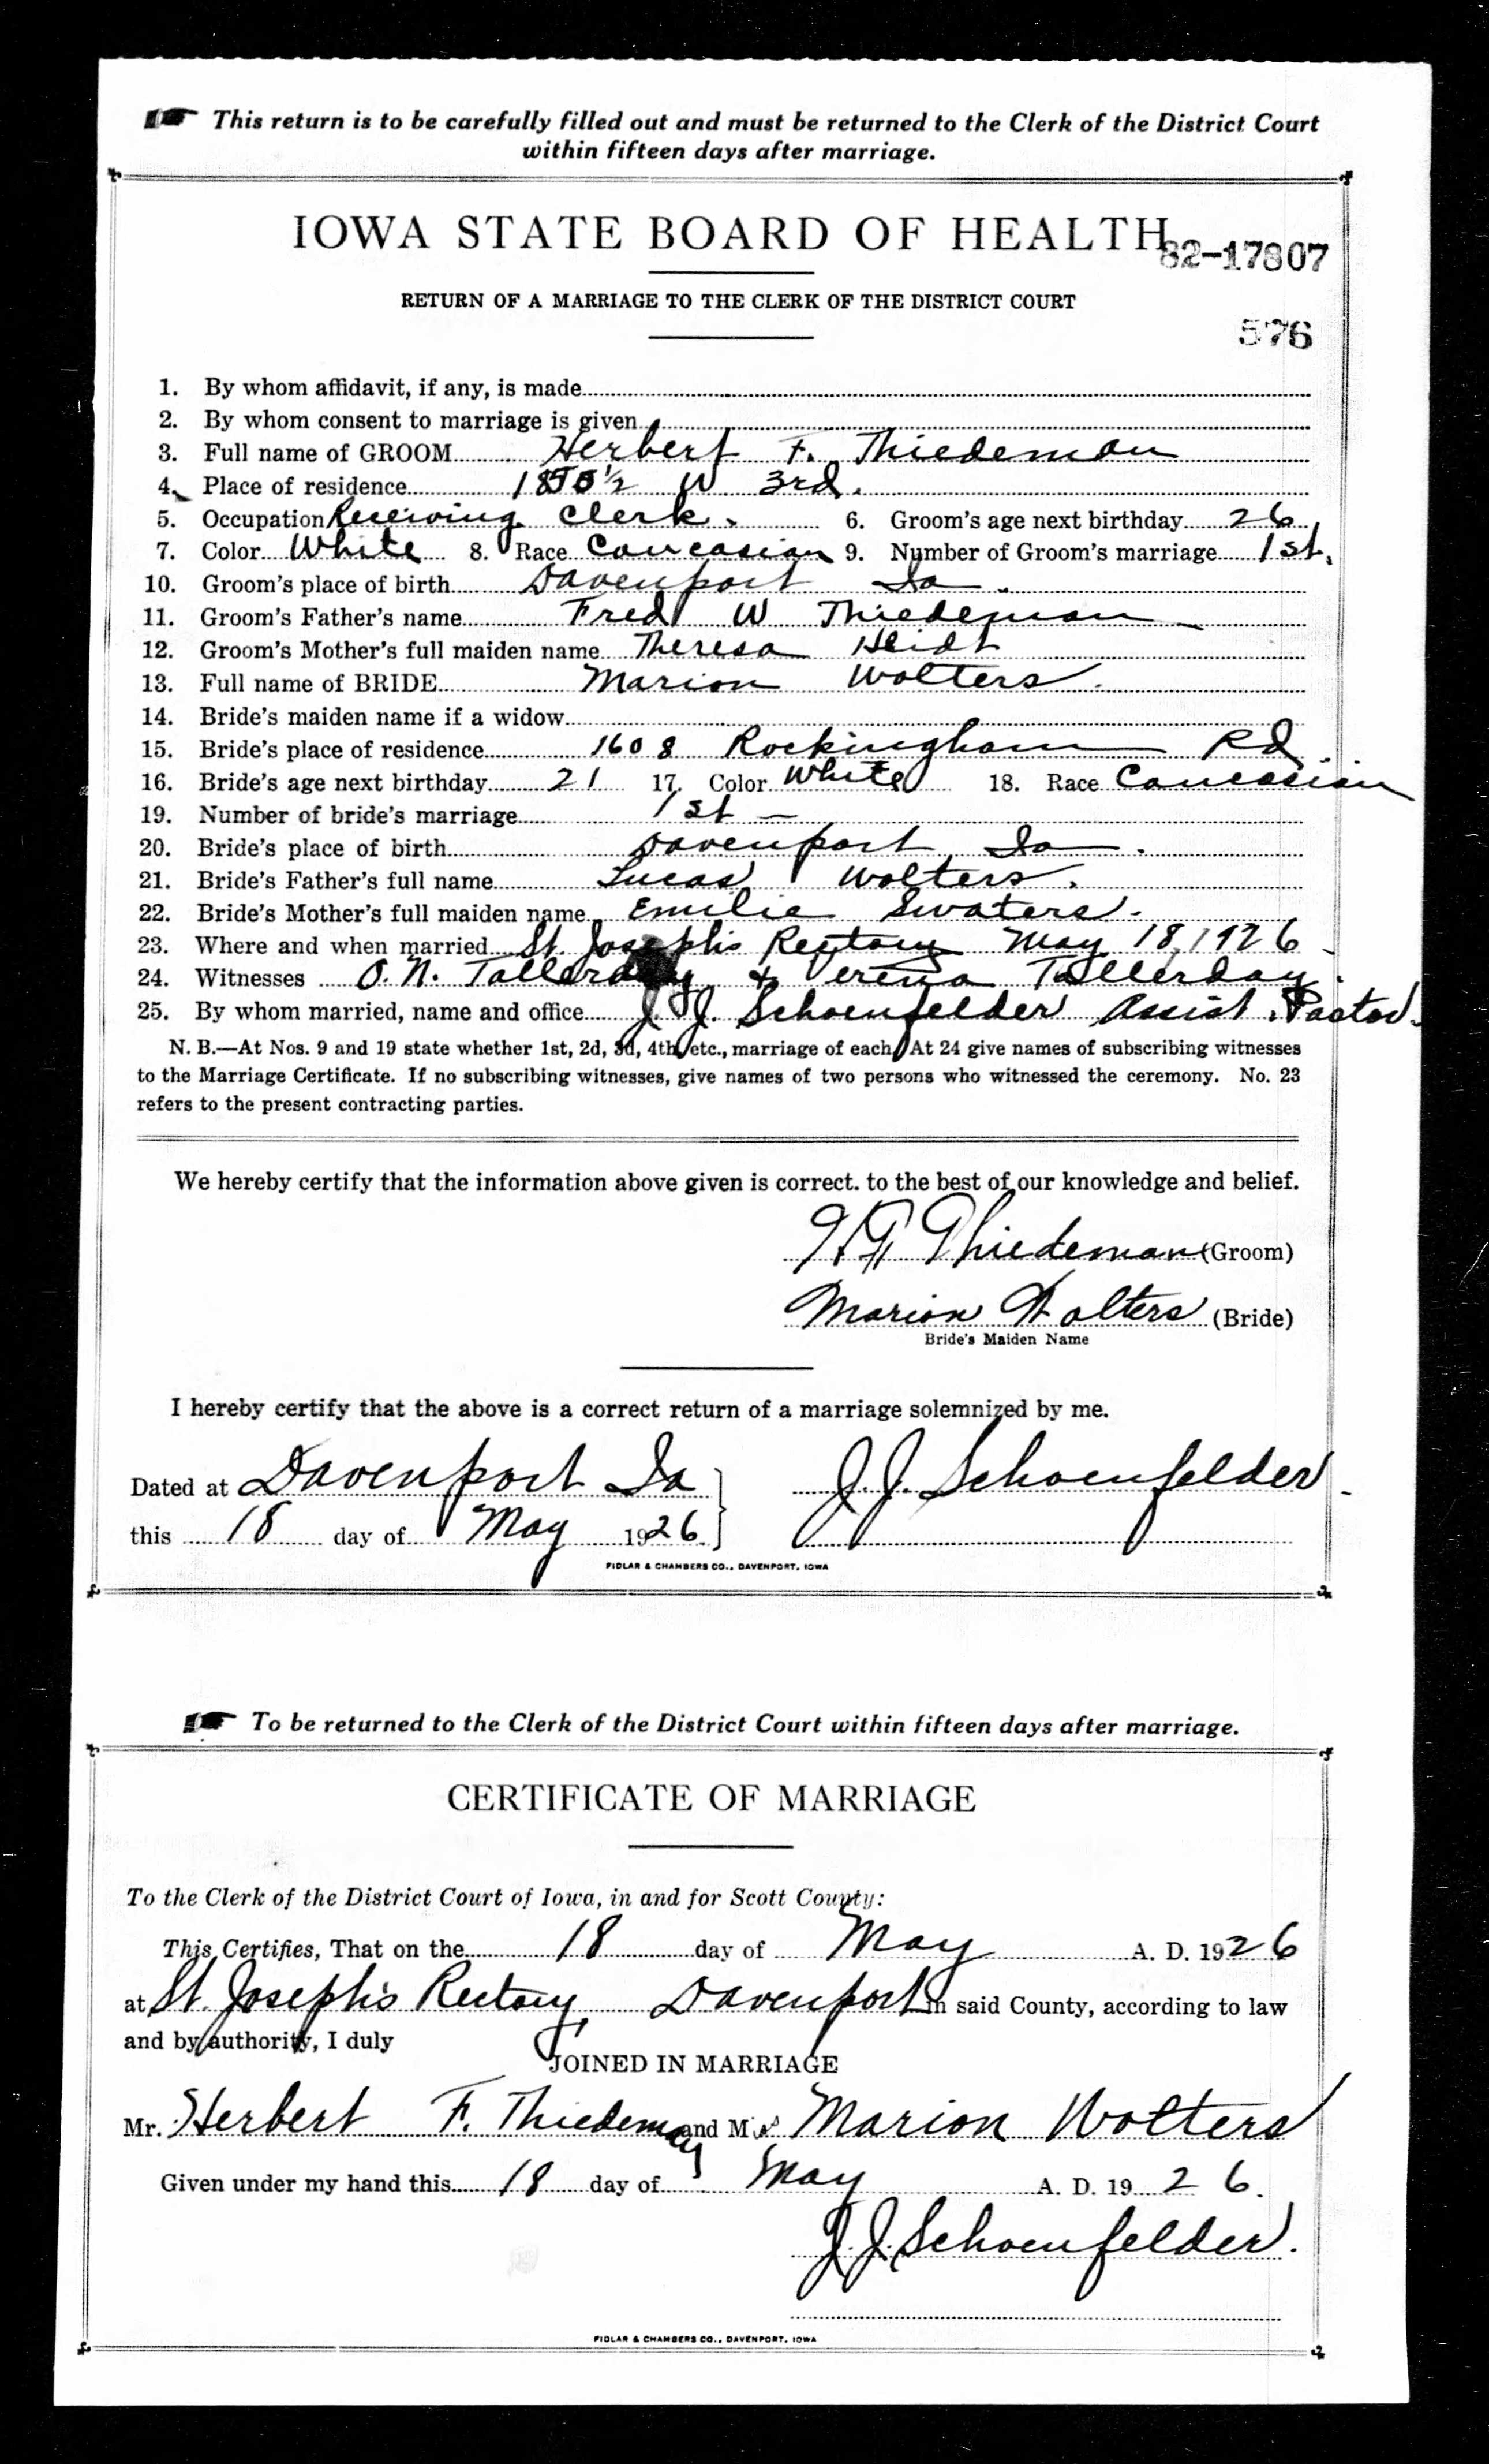 This return is to be carefully filled out and must be returned to the Clerk of the District Court
within fifteen days after marriage.
IOWA STATE BOARD OF HEALTH
82-17807
RETURN OF A MARRIAGE TO THE CLERK OF THE DISTRICT COURT
576
1. By whom affidavit, if any, is made
2. By whom consent to marriage is given
3. Full name of GROOM Herbert F. Thiedeman
4. Place of residence W 3rd.
5. Occupation Receiving Clerk. 6. Groom's age next birthday 26
7. Color White 8. Race Caucasian 9. Number of Groom's marriage 1st.
10. Groom's place of birth Davenport Ia.
11. Groom's Father's name Fred W Thiedeman
12. Groom's Mother's full maiden name Theresa Heidt
13. Full name of BRIDE Marion Wolters.
14. Bride's maiden name if a widow
15. Bride's place of residence 1608 Rockingham Rd
16. Bride's age next birthday 21 17. Color White 18. Race Caucasian
19. Number of bride's marriage 1st —
20. Bride's place of birth Davenport Ia.
21. Bride's Father's full name Lucas Wolters.
22. Bride's Mother's full maiden name Emilie Swaters.
23. Where and when married St. Joseph's Rectory May 18, 1926
24. Witnesses O. N. Tallerday & Verena Tallerday.
25. By whom married, name and office J. J. Schoenfelder Assist. Pastor.
N. B.—At Nos. 9 and 19 state whether 1st, 2d, 3d, 4th, etc., marriage of each. At 24 give names of subscribing witnesses
to the Marriage Certificate. If no subscribing witnesses, give names of two persons who witnessed the ceremony. No. 23
refers to the present contracting parties.
We hereby certify that the information above given is correct. to the best of our knowledge and belief.
H F Thiedeman (Groom)
Marion Wolters (Bride)
Bride's Maiden Name
I hereby certify that the above is a correct return of a marriage solemnized by me.
Dated at Davenport Ia J. J. Schoenfelder
this 18 day of May 1926.
FIDLAR & CHAMBERS CO., DAVENPORT, IOWA
To be returned to the Clerk of the District Court within fifteen days after marriage.
CERTIFICATE OF MARRIAGE
To the Clerk of the District Court of Iowa, in and for Scott County:
This Certifies, That on the 18 day of May A. D. 1926
at St. Joseph's Rectory, Davenport in said County, according to law
and by authority, I duly
JOINED IN MARRIAGE
Mr. Herbert F. Thiedeman and M Marion Wolters
Given under my hand this 18 day of May A. D. 1926.
J. J. Schoenfelder.
FIDLAR & CHAMBERS CO., DAVENPORT, IOWA